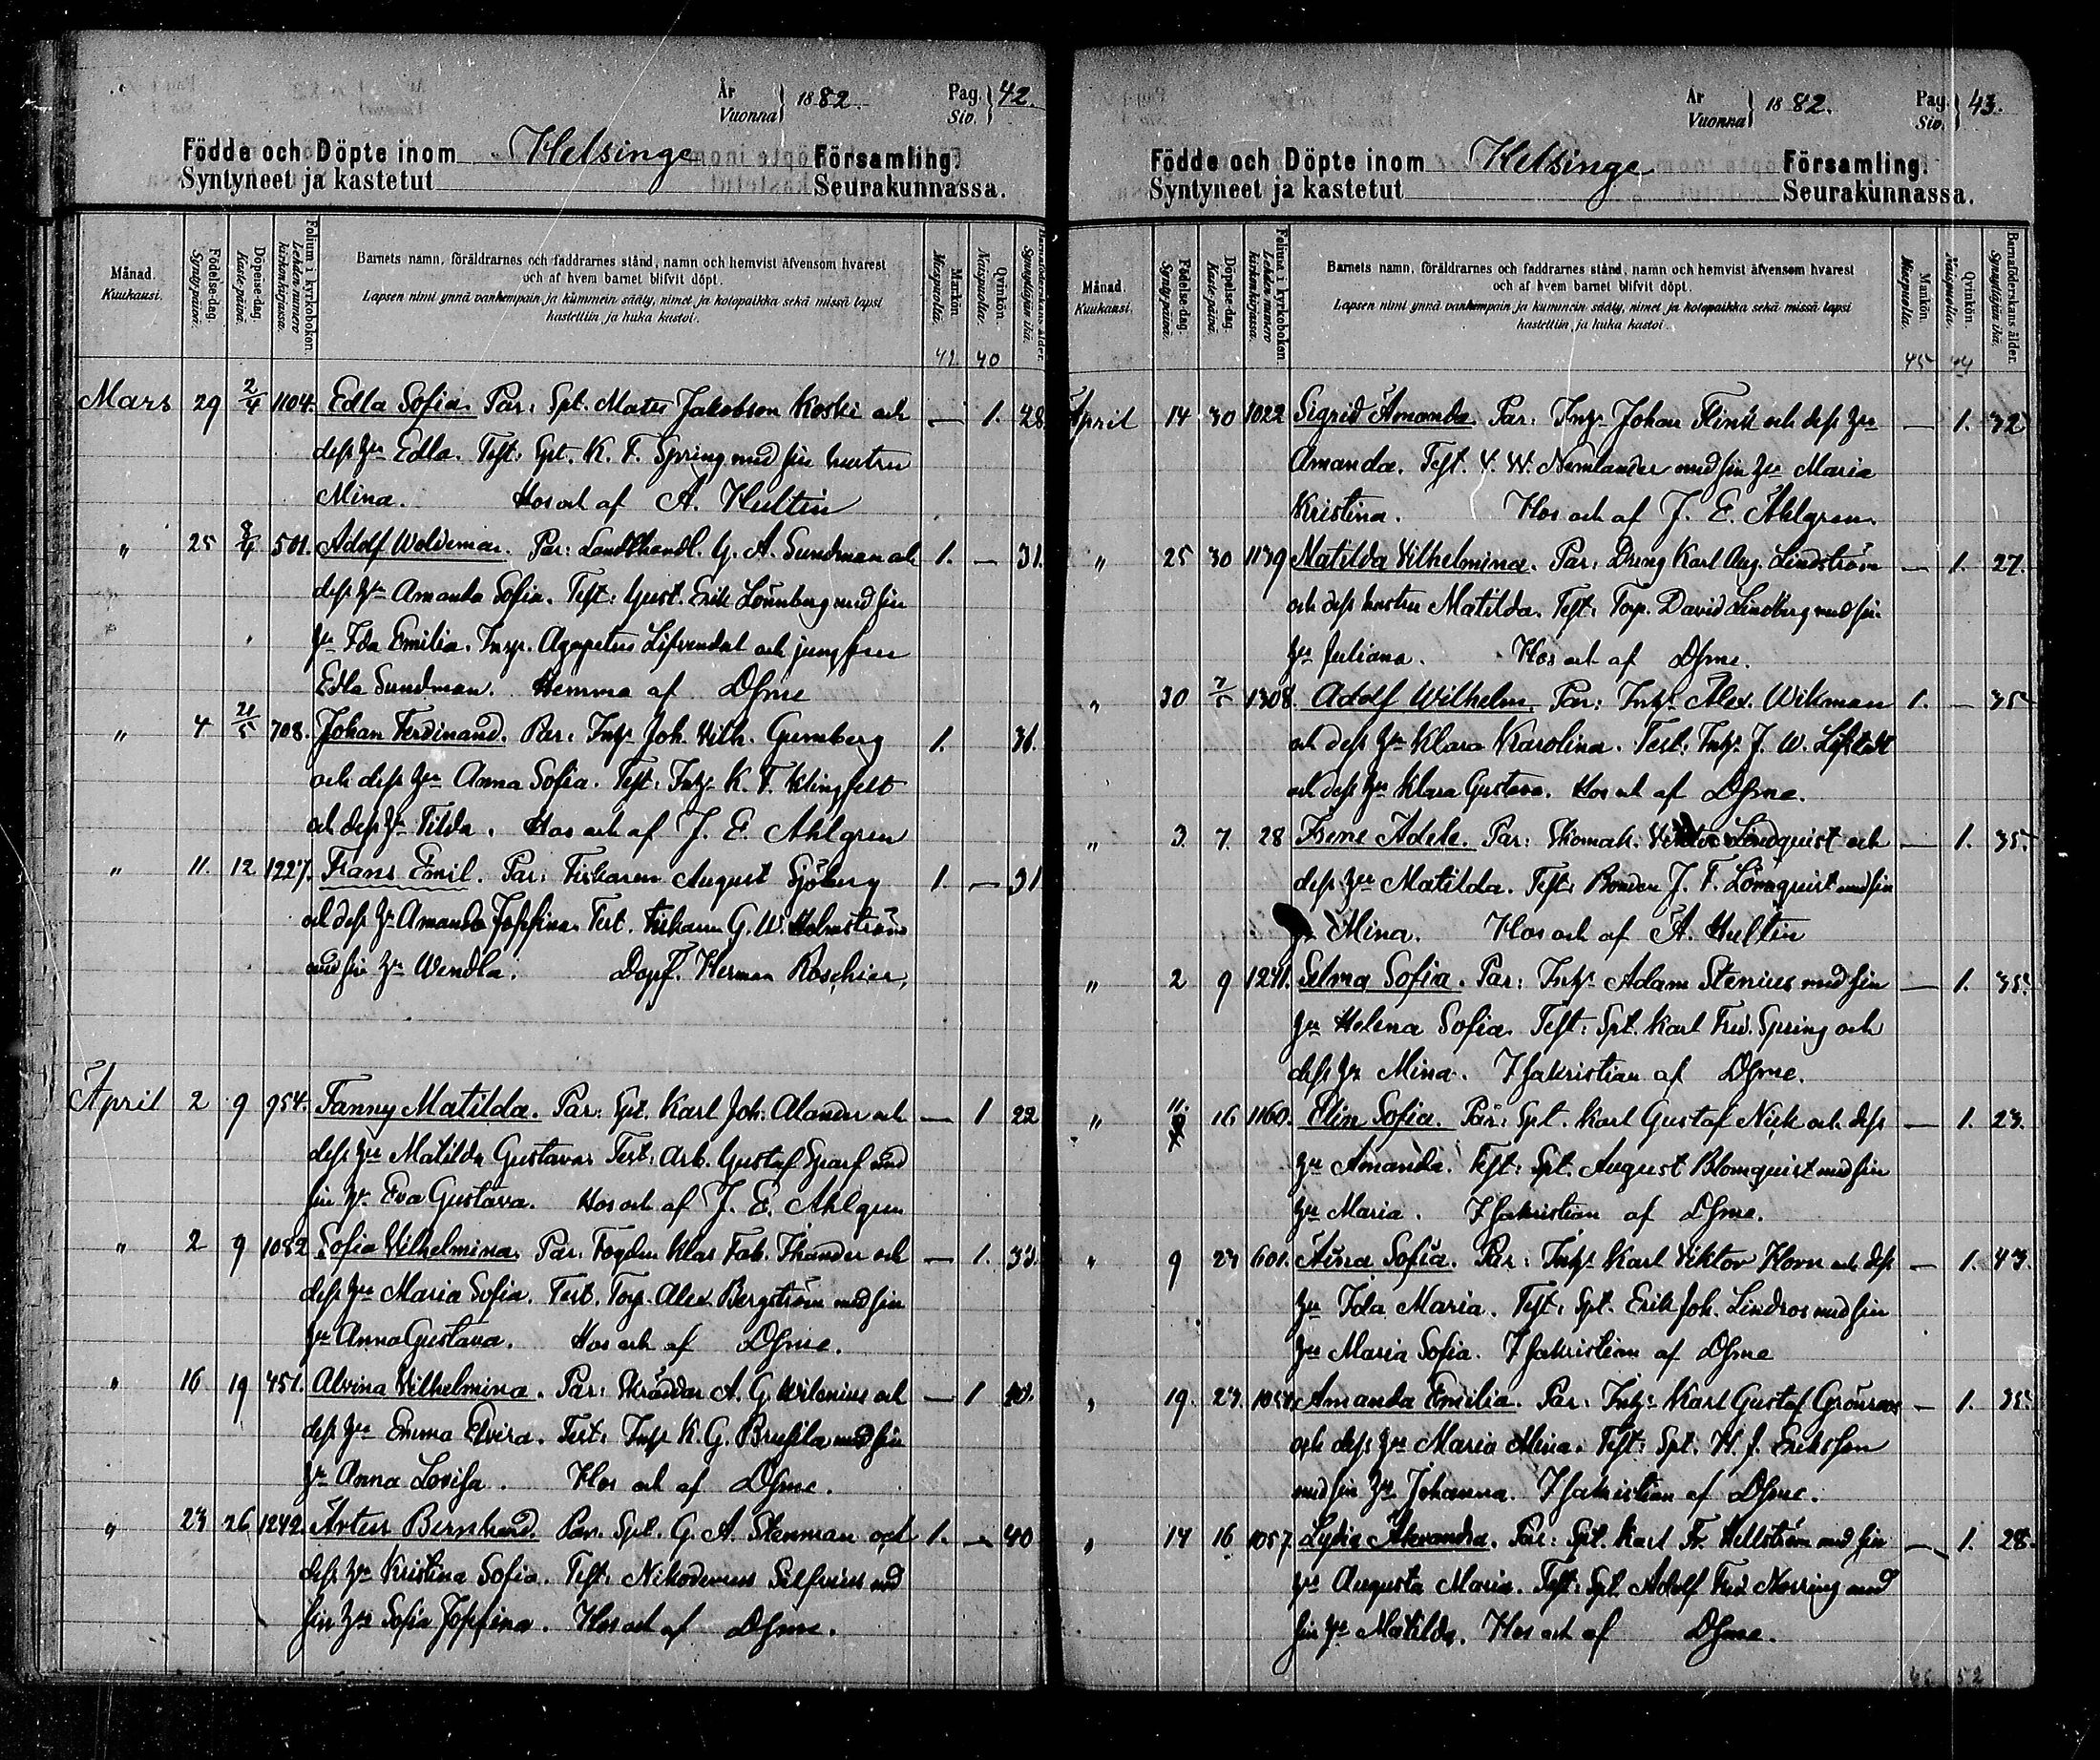 År
Vuonna } 1882
Pag.
Siv. } 42.
Födde och Döpte inom Helsinge Församling.
Syntyneet ja kastetut Seurakunnassa.
Månad.
Kuukausi.
Födelse-dag.
Synty-päivä.
Döpelse-dag.
Kaste-päivä.
Folium i kyrkoboken.
Lehden-numero
kirkonkirjassa.
Barnets namn, föräldrarnes och faddrarnes stånd, namn och hemvist äfvensom hvarest
och af hvem barnet blifvit döpt.
Lapsen nimi ynnä vanhempain ja kummein sääty, nimet ja kotopaikka sekä missä lapsi
kastettiin ja kuka kastoi.
Mankön.
Miespuolia.
Qvinkön.
Naispuolia.
Barnaföderskans ålder.
Synnyttäjän ikä.
42. 40
Mars 29 2/4 1104. Edla Sofia. Par: Spt. Mats Jakobson Koski och — 1. 28
dess hu Edla. Test: Spt. K. F. Spring med sin hustru
Mina. Hos och af A. Hultin
" 25 8/4 501. Adolf Woldemar. Par: Landthandl. G. A. Sundman och 1. — 31.
dess hu Amanda Sofia. Test: Gust. Erik Lönnberg med sin
hu Ida Emilia. Insp. Agapetus Lifvendal och jungfru
Edla Sundman. Hemma af Dsme
" 4 21/5 708. Johan Ferdinand. Par: Inhs Joh. Vilh. Grumberg 1. 31.
och dess hu Anna Sofia. Test: Inhs K. F. Klingfelt
och dess hu Tilda. Hos och af J. E. Ahlgren
" 11. 12 1227. Frans Emil. Par: Fiskaren August Sjöberg 1. — 31
och dess hu Amanda Josefina. Test. Fiskaren G. W. Holmström
med sin hu Wendla. Dopf. Herman Roschier,
April 2 9 954. Fanny Matilda. Par: Spt. Karl Joh. Alander och — 1 22
dess hu Matilda Gustava. Test: Arb. Gustaf Sparf med
sin hu Eva Gustava. Hos och af J. E. Ahlgren
" 2 9 1082 Sofia Vilhelmina. Par: Fogden Klas Fab. Thander och — 1. 33.
dess hu Maria Sofia. Test. Torp. Alex. Bergström med sin
hu Anna Gustava. Hos och af Dsme.
" 16 19 451. Alvina Vilhelmina. Par: Skräddar A. G. Wilenius och — 1
dess hu Emma Elvira. Test: Inhs K. G. Brusila med sin
hu Anna Lovisa. Hos och af Dsme.
" 23 26 1242. Artur Bernhard. Par. Spt. G. A. Stenman och 1. — 40
dess hu Kristina Sofia. Test: Nikodemus Silfvius med
sin hu Sofia Josefina. Hos och af Dsme.
År
Vuonna } 1882.
Pag.
Siv. } 43.
Födde och Döpte inom Helsinge Församling.
Syntyneet ja kastetut Seurakunnassa.
Månad.
Kuukausi.
Födelse-dag.
Synty-päivä.
Döpelse-dag.
Kaste-päivä.
Folium i kyrkoboken.
Lehden-numero
kirkonkirjassa.
Barnets namn, föräldrarnes och faddrarnes stånd, namn och hemvist äfvensom hvarest
och af hvem barnet blifvit döpt.
Lapsen nimi ynnä vanhempain ja kummein sääty, nimet ja kotopaikka sekä missä lapsi
kastettiin ja kuka kastoi.
Mankön.
Miespuolia.
Qvinkön.
Naispuolia.
Barnaföderskans ålder.
Synnyttäjän ikä.
45 44
April 14 30 1022 Sigrid Amanda. Par: Inhs Johan Flink och dess hu — 1. 32
Amanda. Test. V. W. Nymlander med sin hu Maria
Kristina. Hos och af J. E. Ahlgren.
" 25 30 1139 Matilda Vilhelmina. Par: Dreng Karl Aug. Lindström — 1. 27.
och dess hustru Matilda. Test: Torp. David Lindberg med sin
hu Juliana. Hos och af Dsme.
" 30 7/5 1308. Adolf Wilhelm. Par: Inhs Alex. Wikman 1. — 35
och dess hu Klara Karolina. Test: Inhs J. W. Löfstedt
och dess hu Klara Gustava. Hos och af Dsme.
" 3. 7. 28 Irene Adele. Par: Skomak: Viktor Lindquist och — 1. 35.
dess hu Matilda. Test: Bonden J. F. Lönnquist med sin
hu Mina. Hos och af A. Hultin
" 2 9 1241. Selma Sofia. Par: Inhs Adam Stenius med sin — 1. 35.
hu Helena Sofia. Test: Spt. Karl Fred. Spring och
dess hu Mina. I Sakristian af Dsme.
" 11. 16 1160. Elin Sofia. Par: Spt. Karl Gustaf Nick och dess — 1. 23.
hu Amanda. Test: Spt. August Blomquist med sin
hu Maria. I Sakristian af Dsme.
" 9 23 601. Aina Sofia. Par: Inhs Karl Viktor Horn och dess — 1. 43.
hu Ida Maria. Test: Spt. Erik Joh. Lindros med sin
hu Maria Sofia. I Sakristian af Dsme
" 19. 23. Amanda Emilia. Par: Inhs Karl Gustaf Grönroos — 1. 35.
och dess hu Maria Mina. Test: Spt. H. J. Eriksson
med sin hu Johanna. I Sakristian af Dsme.
" 14 16 1057 Lydia Alexandra. Par: Spt. Karl Fr. Hellström med sin — 1. 28.
hu Augusta Maria. Test: Spt. Adolf Fred Norring med
sin hu Matilda. Hos och af Dsme.
46 52